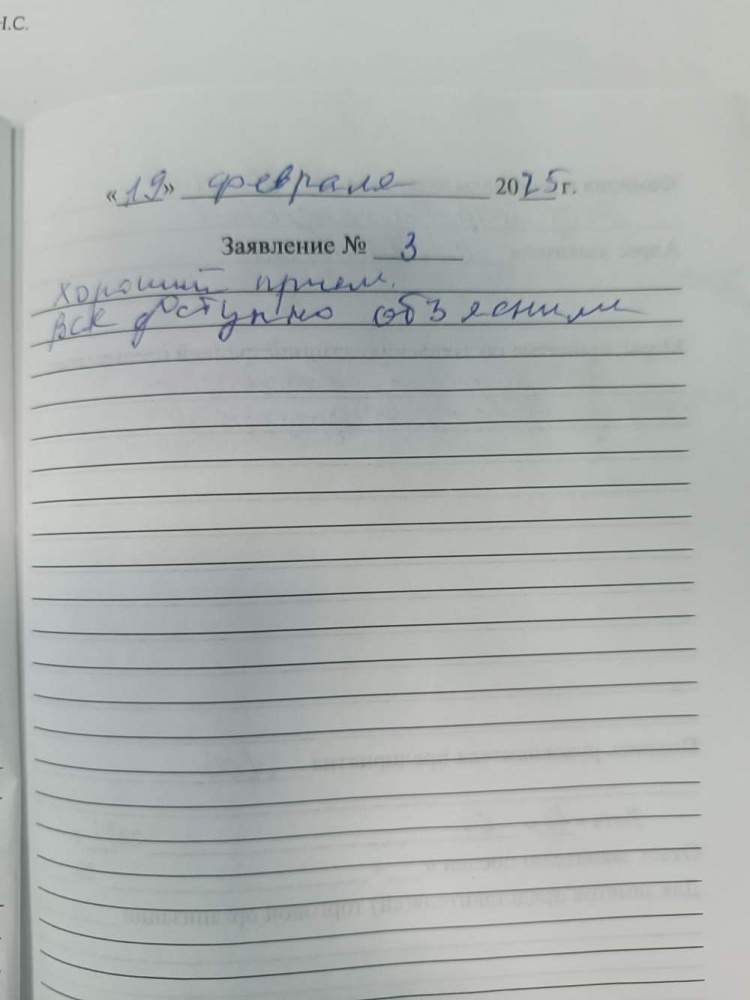 Н.С.
«19» февраля 2025 г.
Заявление № 3
Хороший прием.
Все доступно обзяснили